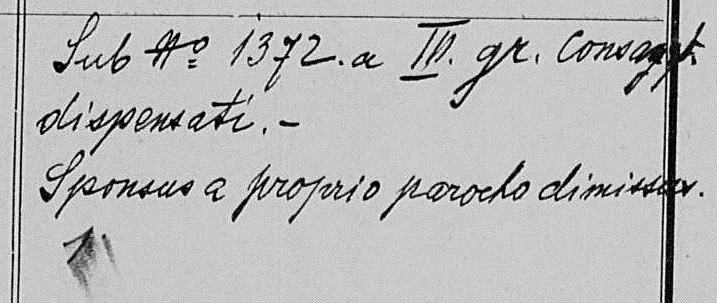 Sub No 1372. a IV. gr. consagqt.
dispensati. -
Sponsus a proprio parocho dimissus.